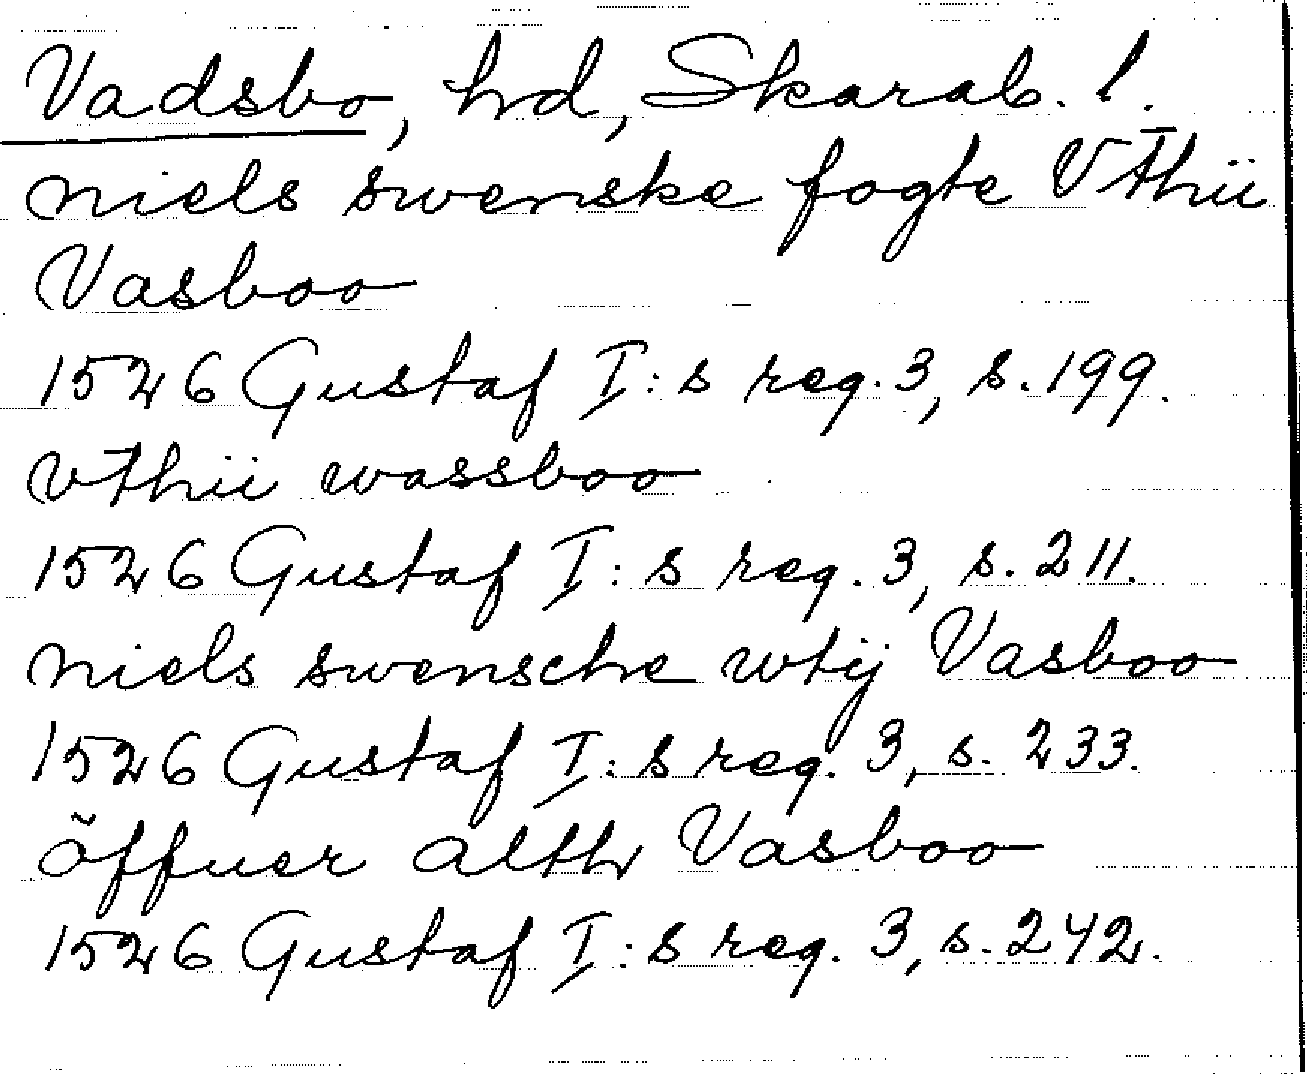 Vadsbo, hd, Skarab. l.
niels swenske fogte Vthii
Vasboo
1526 Gustaf I:s reg. 3, s. 199.
vthii wassboo
1526 Gustaf I:s reg. 3, s. 211.
niels swensche wtij Vasboo
1526 Gustaf I:s reg. 3, s. 233.
õffuer alth Vasboo
1526 Gustaf I:s reg. 3, s. 242.